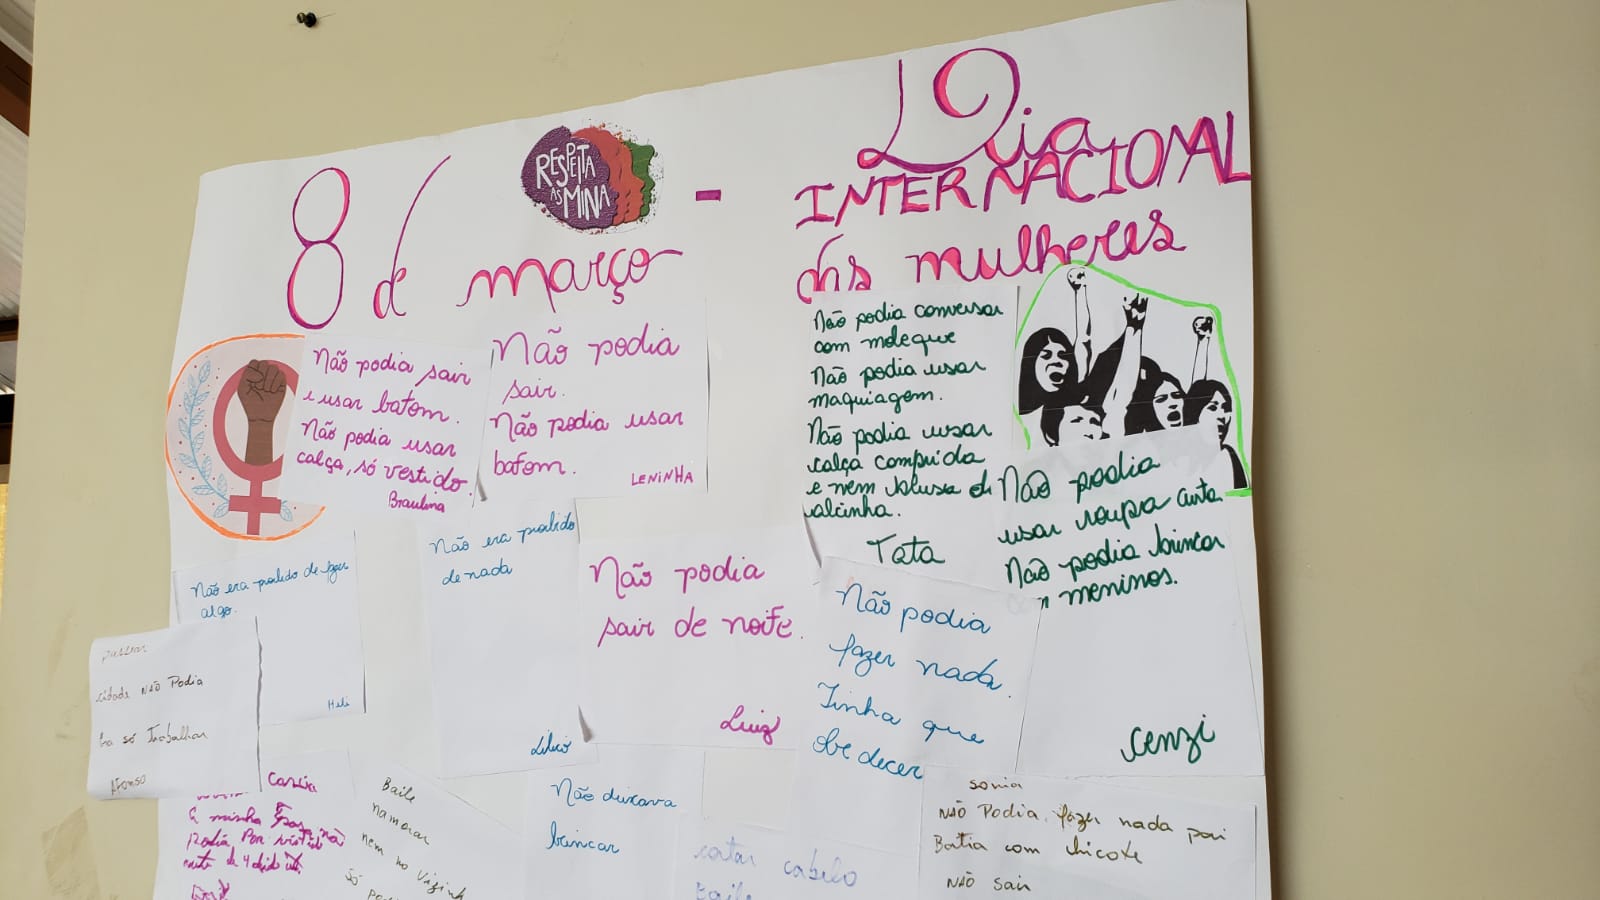 8 de março
RESPEITA
AS MINA
-
Dia
INTERNACIONAL
das mulheres
Não podia sair
e usar batom.
Não podia usar
calça, só vestido.
Braulina
Não podia
sair.
Não podia usar
batom.
LENINHA
Não podia conversar
com moleque
Não podia usar
maquiagem.
Não podia usar
calça comprida
e nem blusa de
alcinha.
Tata
Não podia
usar roupa curta
Não podia brincar
meninos.
Cenzi
Não era proibido de fazer
algo.
Heli
Não era proibido
de nada
Não podia
sair de noite.
Luiz
Não podia
fazer nada.
Tinha que
obedecer
passear
cidade NÃO Podia
Era só Trabalhar
Afonso
A minha
Podia Por vestido
curto
Baile
namorar
nem no
só
Não deixava
brincar
catar cabelo
Baile
sonia
NÃO Podia fazer nada pai
Batia com chicote
NÃO Sair